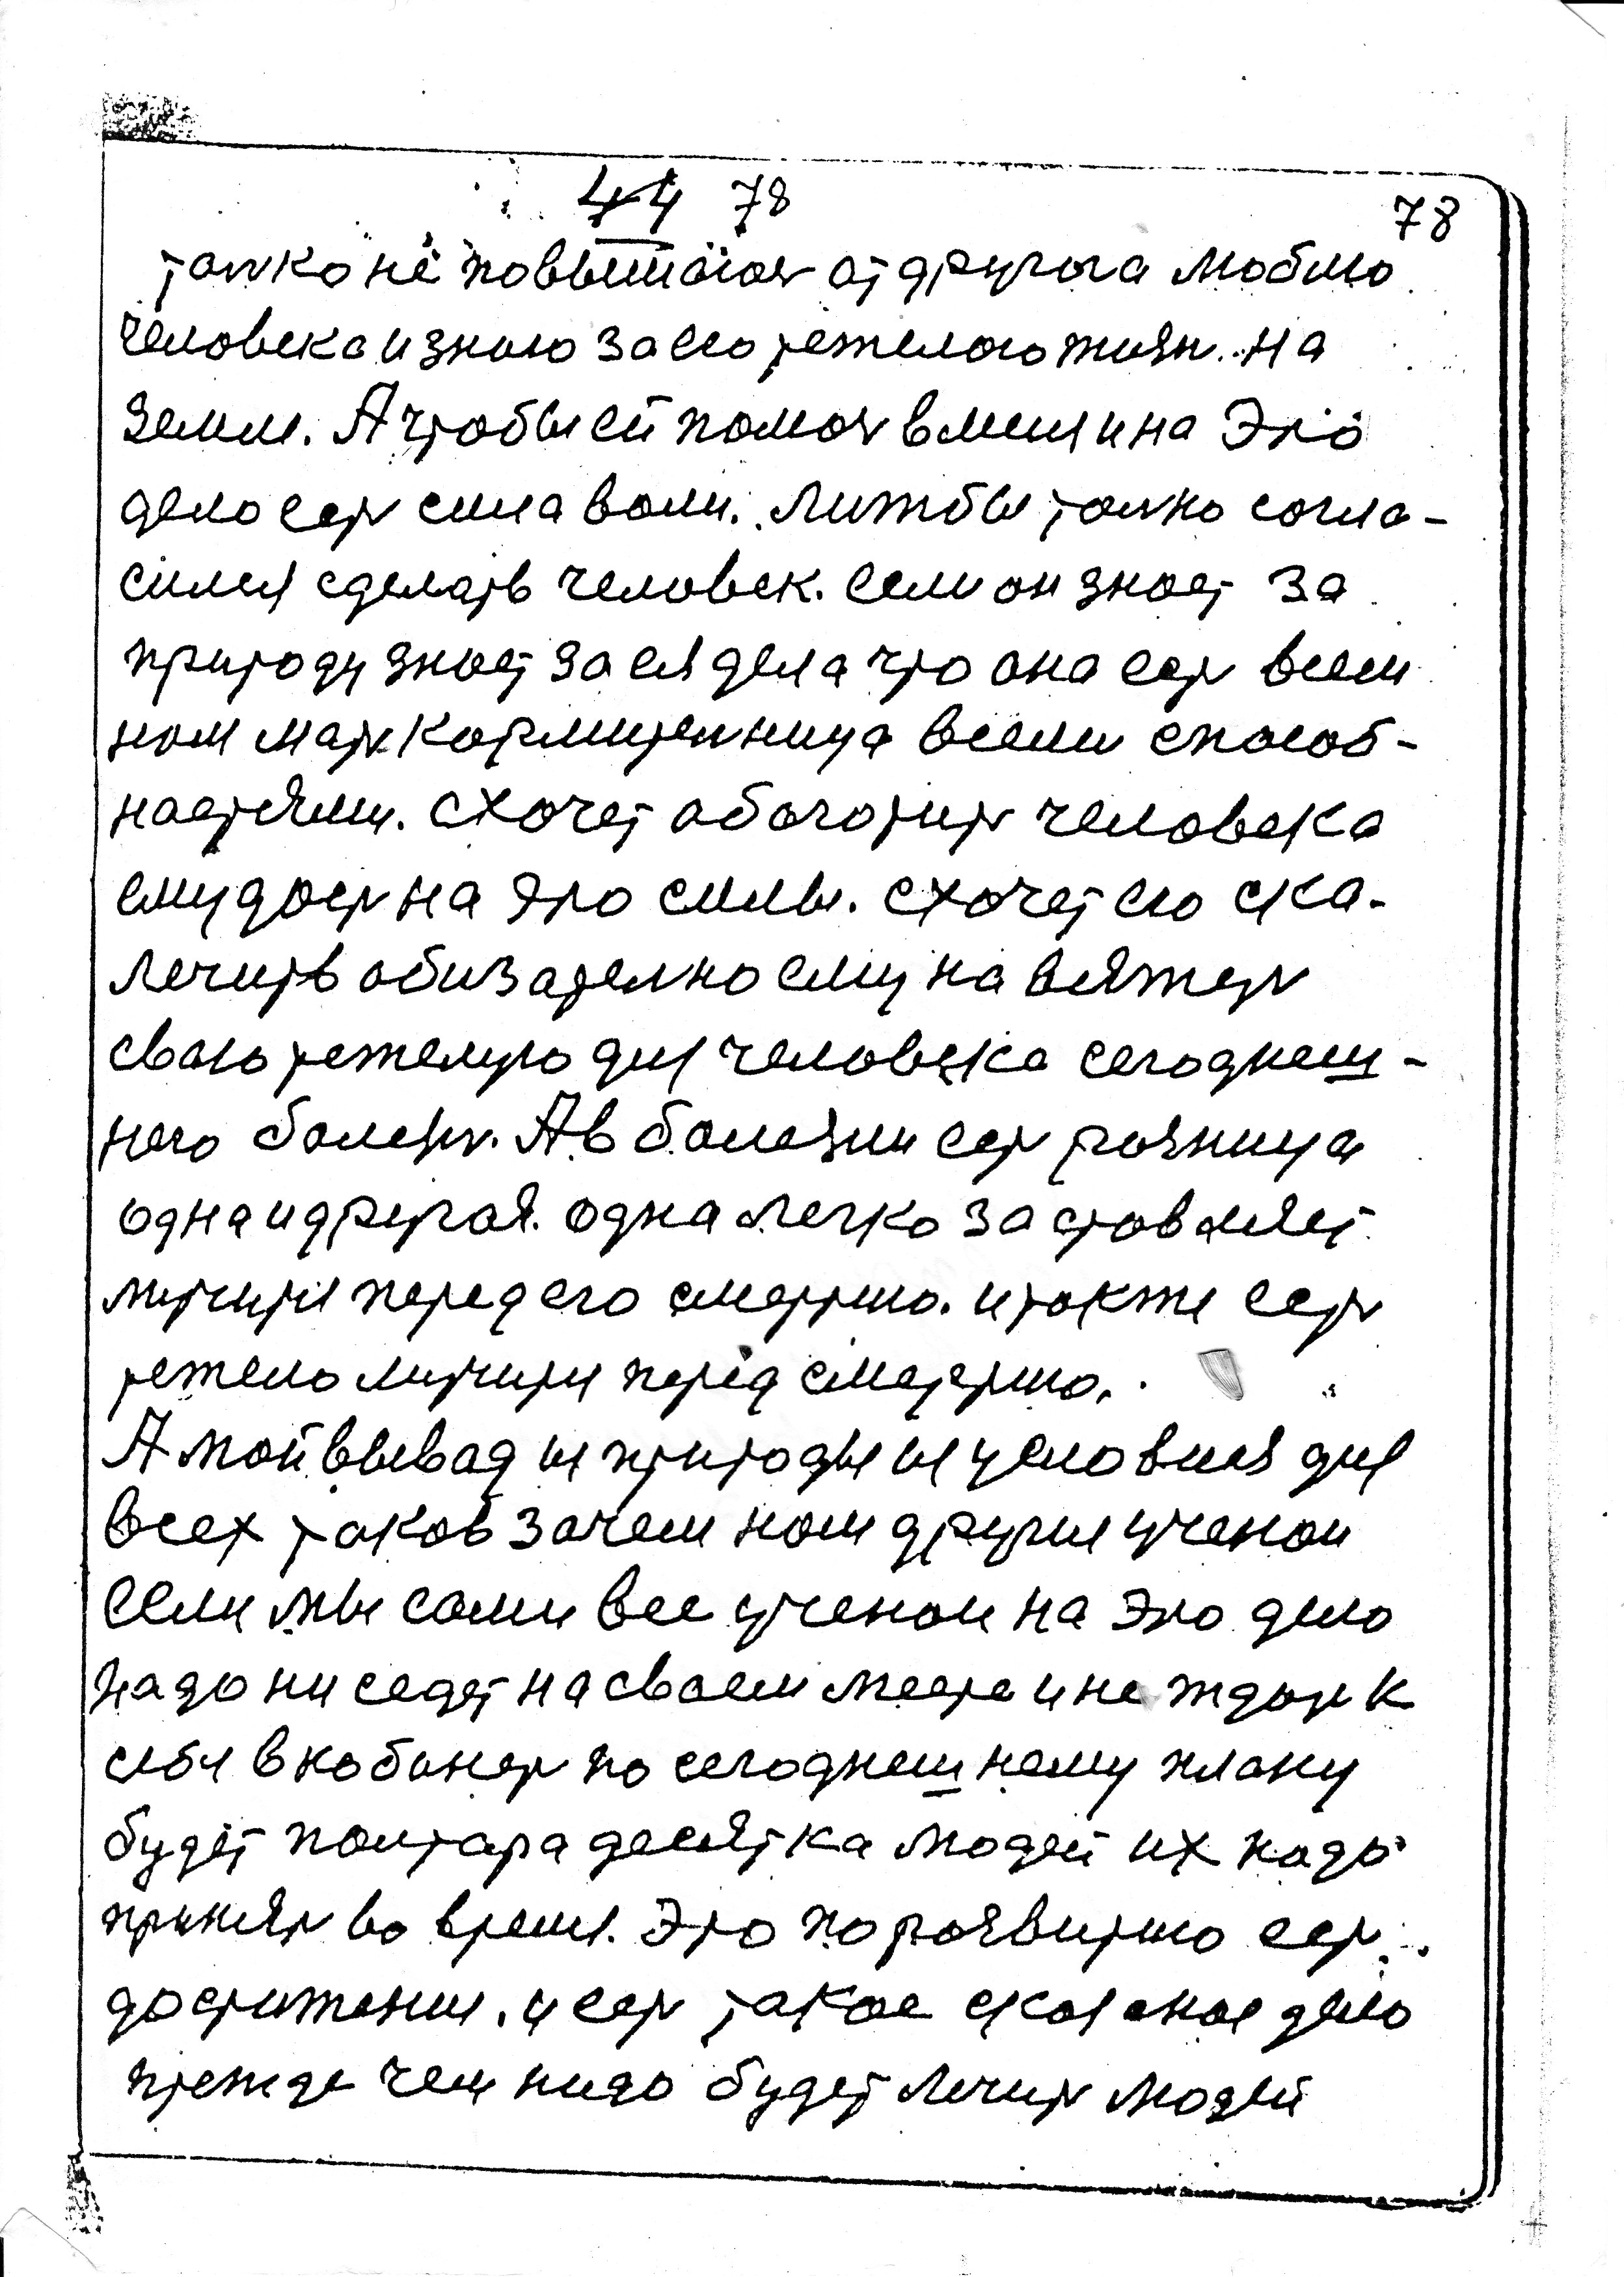 44 78
78
толко не повыштоюя от другога люблю
человека и знаю за его тежелою жизн. на
земли. А чтобы ей помоч в меня и на Это
дело есть сила воли. лижбы толко согла-
сился сделать человек. если он знает за
природу знает за ея дела что она есть всем
нам мать кормителница всеми способ-
настями. схочет обогатить человека
ему дасть на это силы. схочет его ска-
лечить обизателно ему навяжеть
сваю тежелую для человека сегоднеш-
него болезн. А в болезни есть розница
одна и другая. одна легко заставляет
мучится перед его смертю. и также есть
тежело мучится перед смертю.
А мой вывад из природы из условия для
всех таков зачем нам други ученаи
если мы сами все ученаи на Это дело
надо ни седет на своем месте и не ждать к
себя в кабинет по сегоднешнему плану
будет полтара десятка людей их надо
принять во время. Это по розвитию есть
достижения. и есть такое сказаное дело
прежде чем надо будет лечить людей